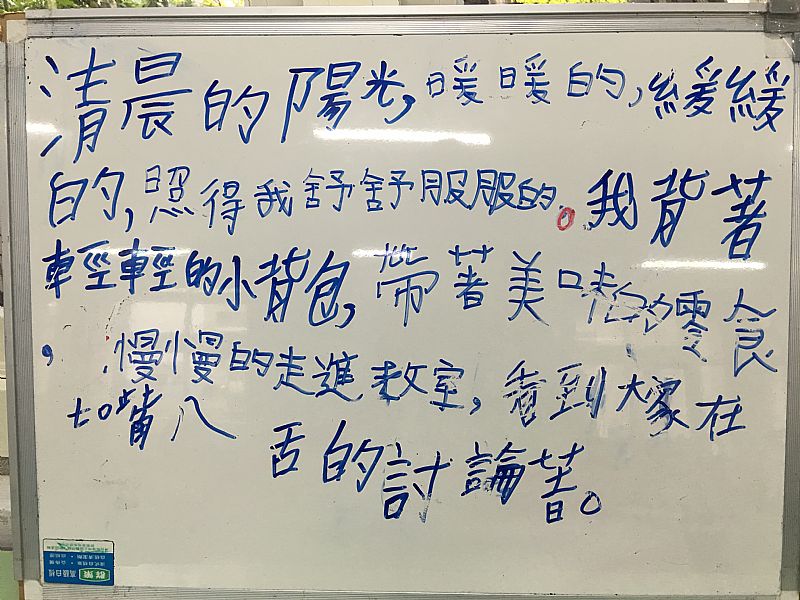 清晨的陽光,暖暖的,緩緩
的,照得我舒舒服服的。我背著
輕輕的小背包,帶著美味的零食
,慢慢的走進教室,看到大家在
七嘴八
舌的討論著。
群策
高級白板